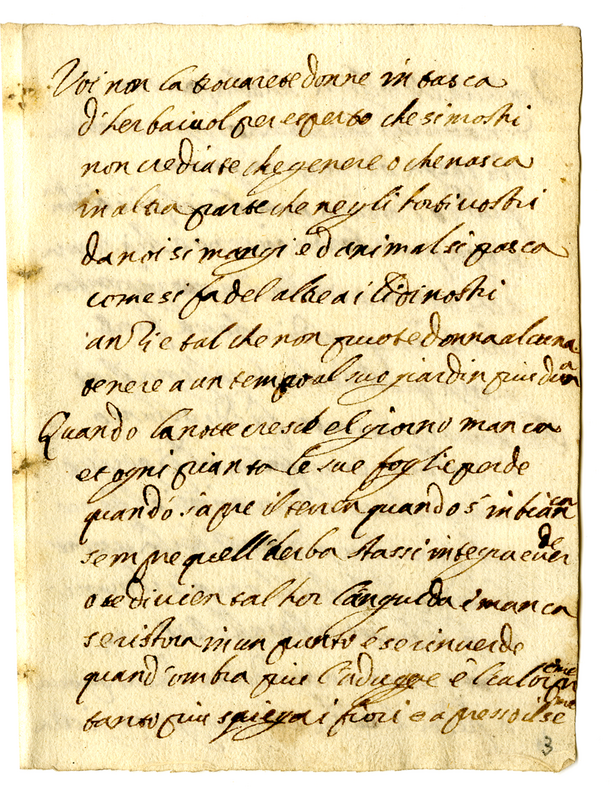 Voi non la trovarete donne in tasca
d'herbaiuol per esperto che si mostri
non crediate che genere o che nasca
in altra parte che negli horti vostri
da noi si mangi e d'animal si pasca
come si fa del altre a i lidi nostri
anzi e tal che non puote donna alcuna
tenere a un tempo al suo giardin piu d'una
Quando la notte cresce el giorno manca
et ogni pianta le sue foglie perde
quando s'apre il terren quando s'inbianca
sempre quell'herba stassi integra e verde
o se divien talhor languida e manca
se ristora in un punto e se rinverde
quand'ombra piu l'adugge e
tanto piu spiega i fiori e apresso il seme
3